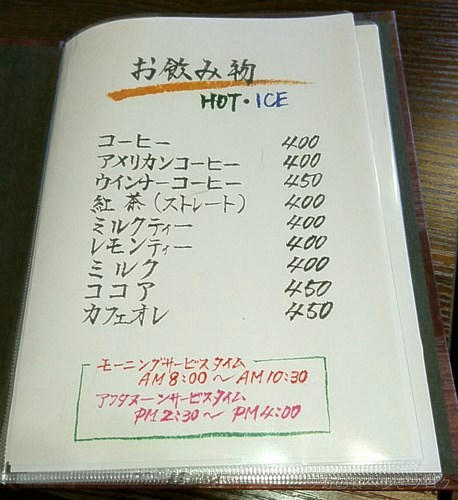 お飲み物
HOT・ICE
コーヒー 400
アメリカンコーヒー 400
ウインナーコーヒー 450
紅茶(ストレート) 400
ミルクティー 400
レモンティー 400
ミルク 400
ココア 450
カフェオレ 450
モーニングサービスタイム
AM8:00〜AM10:30
アフタヌーンサービスタイム
PM2:30〜PM4:00